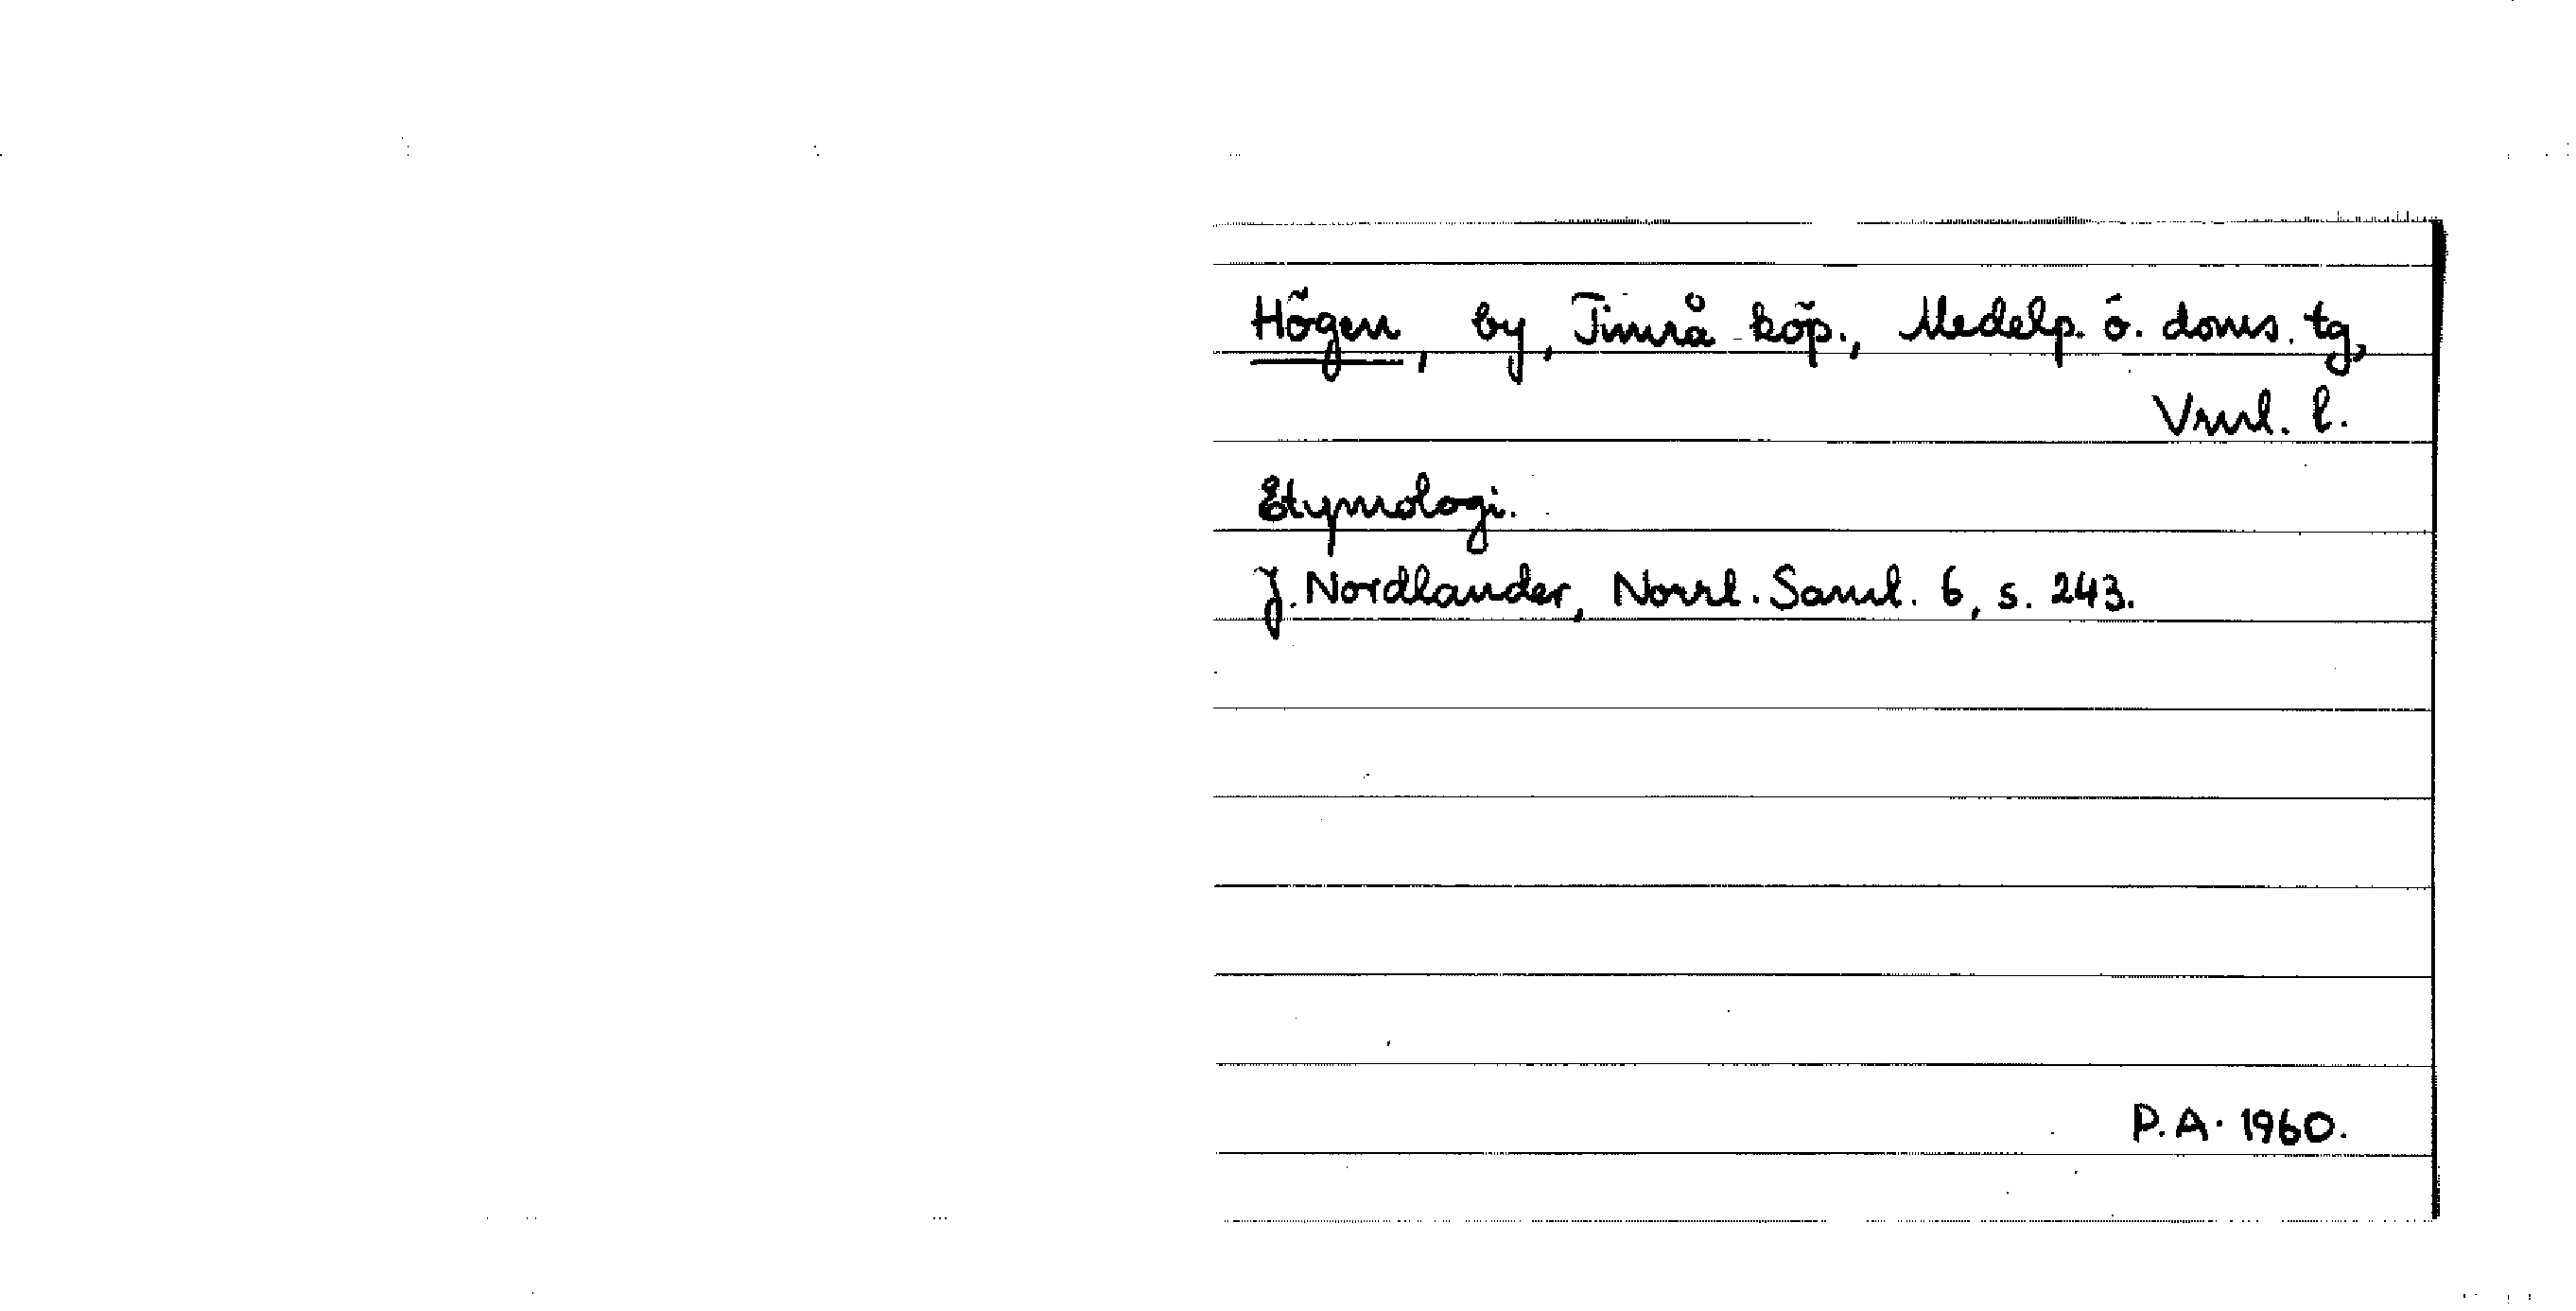 Högen, by, Timrå köp., Medelp. ö. doms. tg,
Vrnl. l.
Etymologi.
J. Nordlander, Norrl. Saml. 6, s. 243.
P.A. 1960.